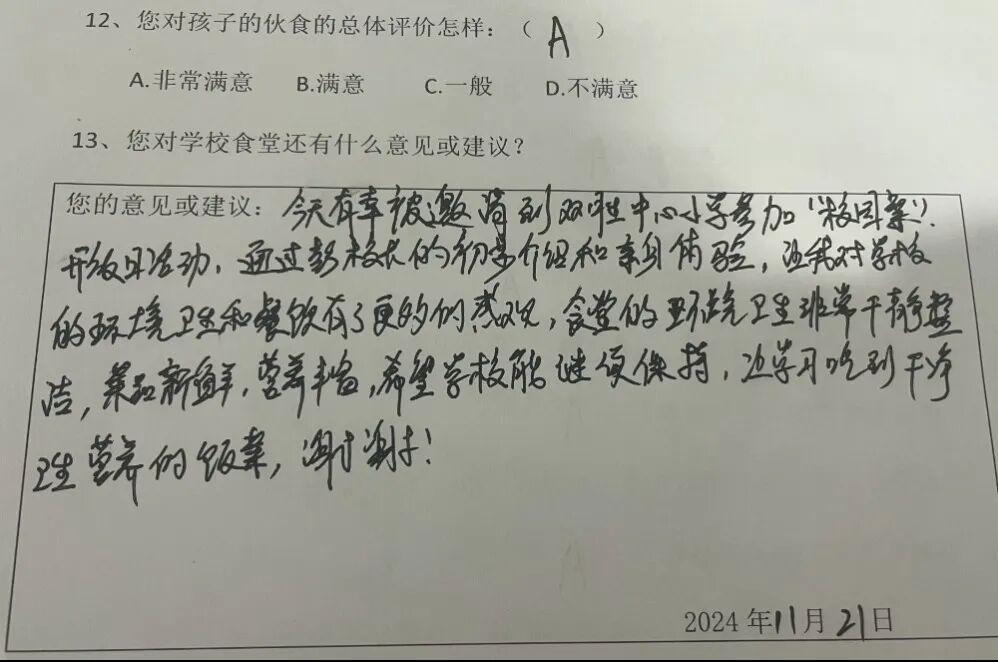 12、您对孩子的伙食的总体评价怎样：（ A ）
A.非常满意 B.满意 C.一般 D.不满意
13、您对学校食堂还有什么意见或建议？
您的意见或建议：今天有幸被邀请到双中心小学参加“校园餐”
开放日活动，通过彭校长的介绍和亲身体验，让我对学校
的环境卫生和餐饮有了更的感观，食堂的环境卫生非常干静整
洁，菜品新鲜，营养丰富，希望学校能继续保持，让学习吃到干净
卫生营养的饭菜，谢谢！
2024年11月21日